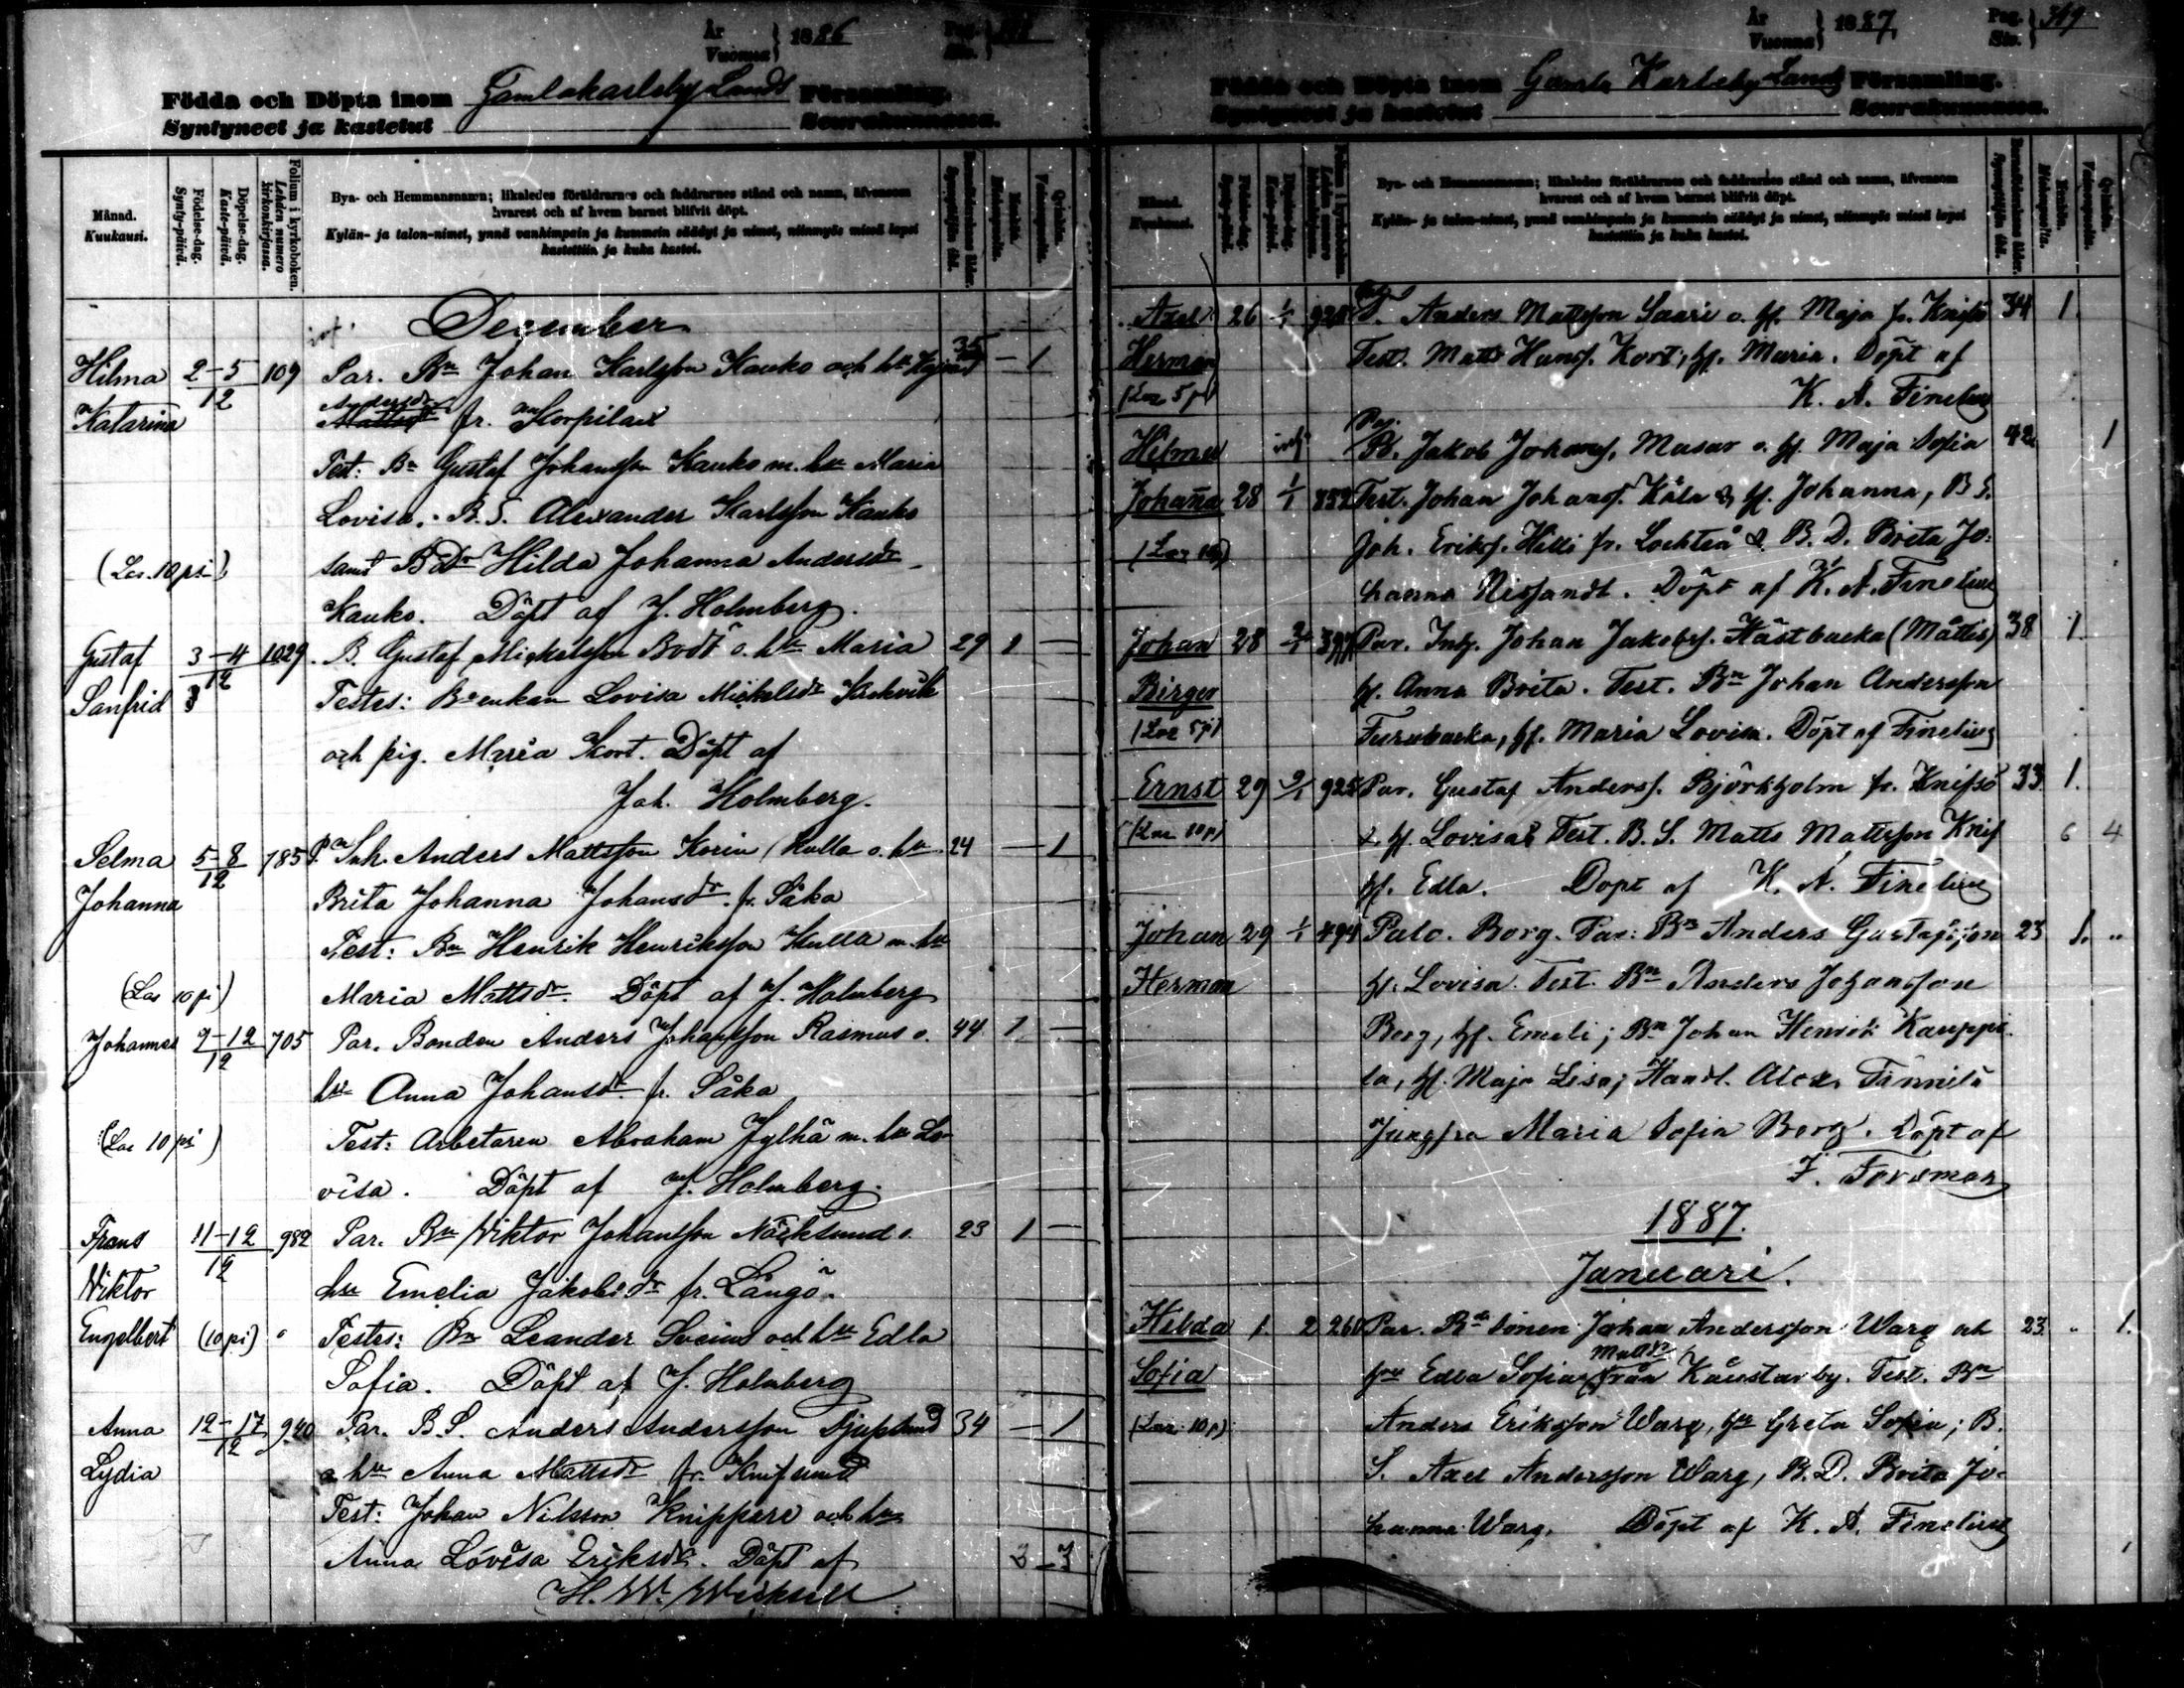 År
Vuonna } 1886
Pag.
Siv. }
Födda och Döpta inom Gamlakarleby Lands Församling.
Syntyneet ja kastetut Seurakunnassa.
Månad.
Kuukausi.
Födelse-dag.
Synty-päivä.
Döpelse-dag.
Kaste-päivä.
Folium i kyrkoboken.
Lehden numero
kirkonkirjassa.
Bya- och Hemmansnamn; likaledes föräldrarnes och faddrarnes stånd och namn, äfvensom
hvarest och af hvem barnet blifvit döpt.
Kylän- ja talon-nimet, ynnä vanhimpain ja kummein säädyt ja nimet, niinmyös missä lapsi
kastettiin ja kuka kastoi.
December
Hilma 2-5/12 109 Par. Bn Johan Karlsson Kauko och hu Kajsa 35 — 1
Katarina Andersdr Mattsdr fr. Korpilax
Test: Bn Gustaf Johansson Kauko m. hu Maria
Lovisa, B.S. Alexander Karlsson Kauko
(Lös. 10 pi) samt B Dr Hilda Johanna Andersdr
Kauko. Döpt af J. Holmberg.
Gustaf 3-4/12 1029. B. Gustaf Mickelsson Bodö o. hu Maria 29 1 —
Sanfrid Testes: Bn enkan Lovisa Mickelsdr
och pig. Maria Kort. Döpt af
Joh. Holmberg.
Selma 5-8/12 785 P. Inh. Anders Mattsson Korin (Kulla o. hu 24 — 1
Johanna Brita Johanna Johansdr fr. Såka
Test: Bn Henrik Henriksson Kulla m. hu
(Lös 10 pi) Maria Mattsdr. Döpt af J. Holmberg
Johannes 9-12/12 705 Par. Bonden Anders Johansson Rasmus o. 44 1 —
hu Anna Johansdr fr. Såka
(Lös 10 pi) Test: Arbetaren Abraham Jylhä m. hu Lo-
visa. Döpt af J. Holmberg.
Frans 11-12/12 982 Par. Bn Viktor Johansson Näcksund o. 23 1 —
Viktor hu Emelia Jakobsdr fr. Långö.
Engelbert (10 pi) Testes: Bn Leander Sveins och hu Edla
Sofia. Döpt af J. Holmberg
Anna 12-17/12 940 Par. B.S. Anders Andersson Djupsund 34 — 1
Lydia o hu Anna Mattsdr fr. Knifsund
Test: Johan Nilsson Knippare och hu
Anna Lovisa Eriksdr. Döpt af 3 — 3
H. W. Wicksell
År
Vuonna } 1887
Pag.
Siv. } 349
Födda och Döpta inom Gamla Karleby Lands Församling.
Syntyneet ja kastetut Seurakunnassa.
Månad.
Kuukausi.
Bya- och Hemmansnamn; likaledes föräldrarnes och faddrarnes stånd och namn, äfvensom
hvarest och af hvem barnet blifvit döpt.
Kylän- ja talon-nimet, ynnä vanhimpain ja kummein säädyt ja nimet, niinmyös missä lapsi
kastettiin ja kuka kastoi.
Axel 26 1/1 Anders Mattsson Saari o. hf. Maja fr. Knifsö 34 1.
Herman Test. Matts Hansf. Kort, hf. Maria. Döpt af
(Lös 5 p) K. A. Finelius
Hilma Par. Jakob Johansf. Musar o. hf. Maja Sofia 42 1
Johana 28 1/1 852 Test. Johan Johansf. Kåla & hf. Johanna, B S.
Joh. Eriksf. Hilli fr. Lochteå & B. D. Brita Jo-
hanna Nissandt. Döpt af K. A. Finelius
Johan 28 Par. Inh. Johan Jakobsf. Hästbacka (Mattis) 38 1.
Birger hf. Anna Brita. Test. Bn Johan Andersson
(Lös 5 p) Furubacka, hf. Maria Lovisa. Döpt af Finelius
Ernst 29 2/1 925 Par. Gustaf Andersf. Björkholm fr. Knifsö 33 1.
(Lös 10 p) & hf. Lovisa. Test. B. S. Matts Mattsson Knif 6 4
hf. Edla. Döpt af K. A. Finelius
Johan 29 1/1 494 Palo. Borg. Par: Bn Anders Gustafsson 23 1. "
Herman hf. Lovisa. Test. Bn Anders Johansson
Borg, hf. Emeli; Bn Johan Henrik Kauppi-
la, hf. Maja Lisa; Handl. Alex. Finnilä
Jungfru Maria Sofia Borg. Döpt af
F. Forsman
1887.
Januari.
Hilda 1. 2 260 Par. Bde sonen Johan Andersson Warg och 23 " 1.
Sofia hu Edla Sofia Mattsdr från Kaustarby. Test. Bn
(Lös 10 p) Anders Eriksson Warg, hu Greta Sofia; B.
S. Axel Andersson Warg, B. D. Brita Jo-
hanna Warg. Döpt af K. A. Finelius